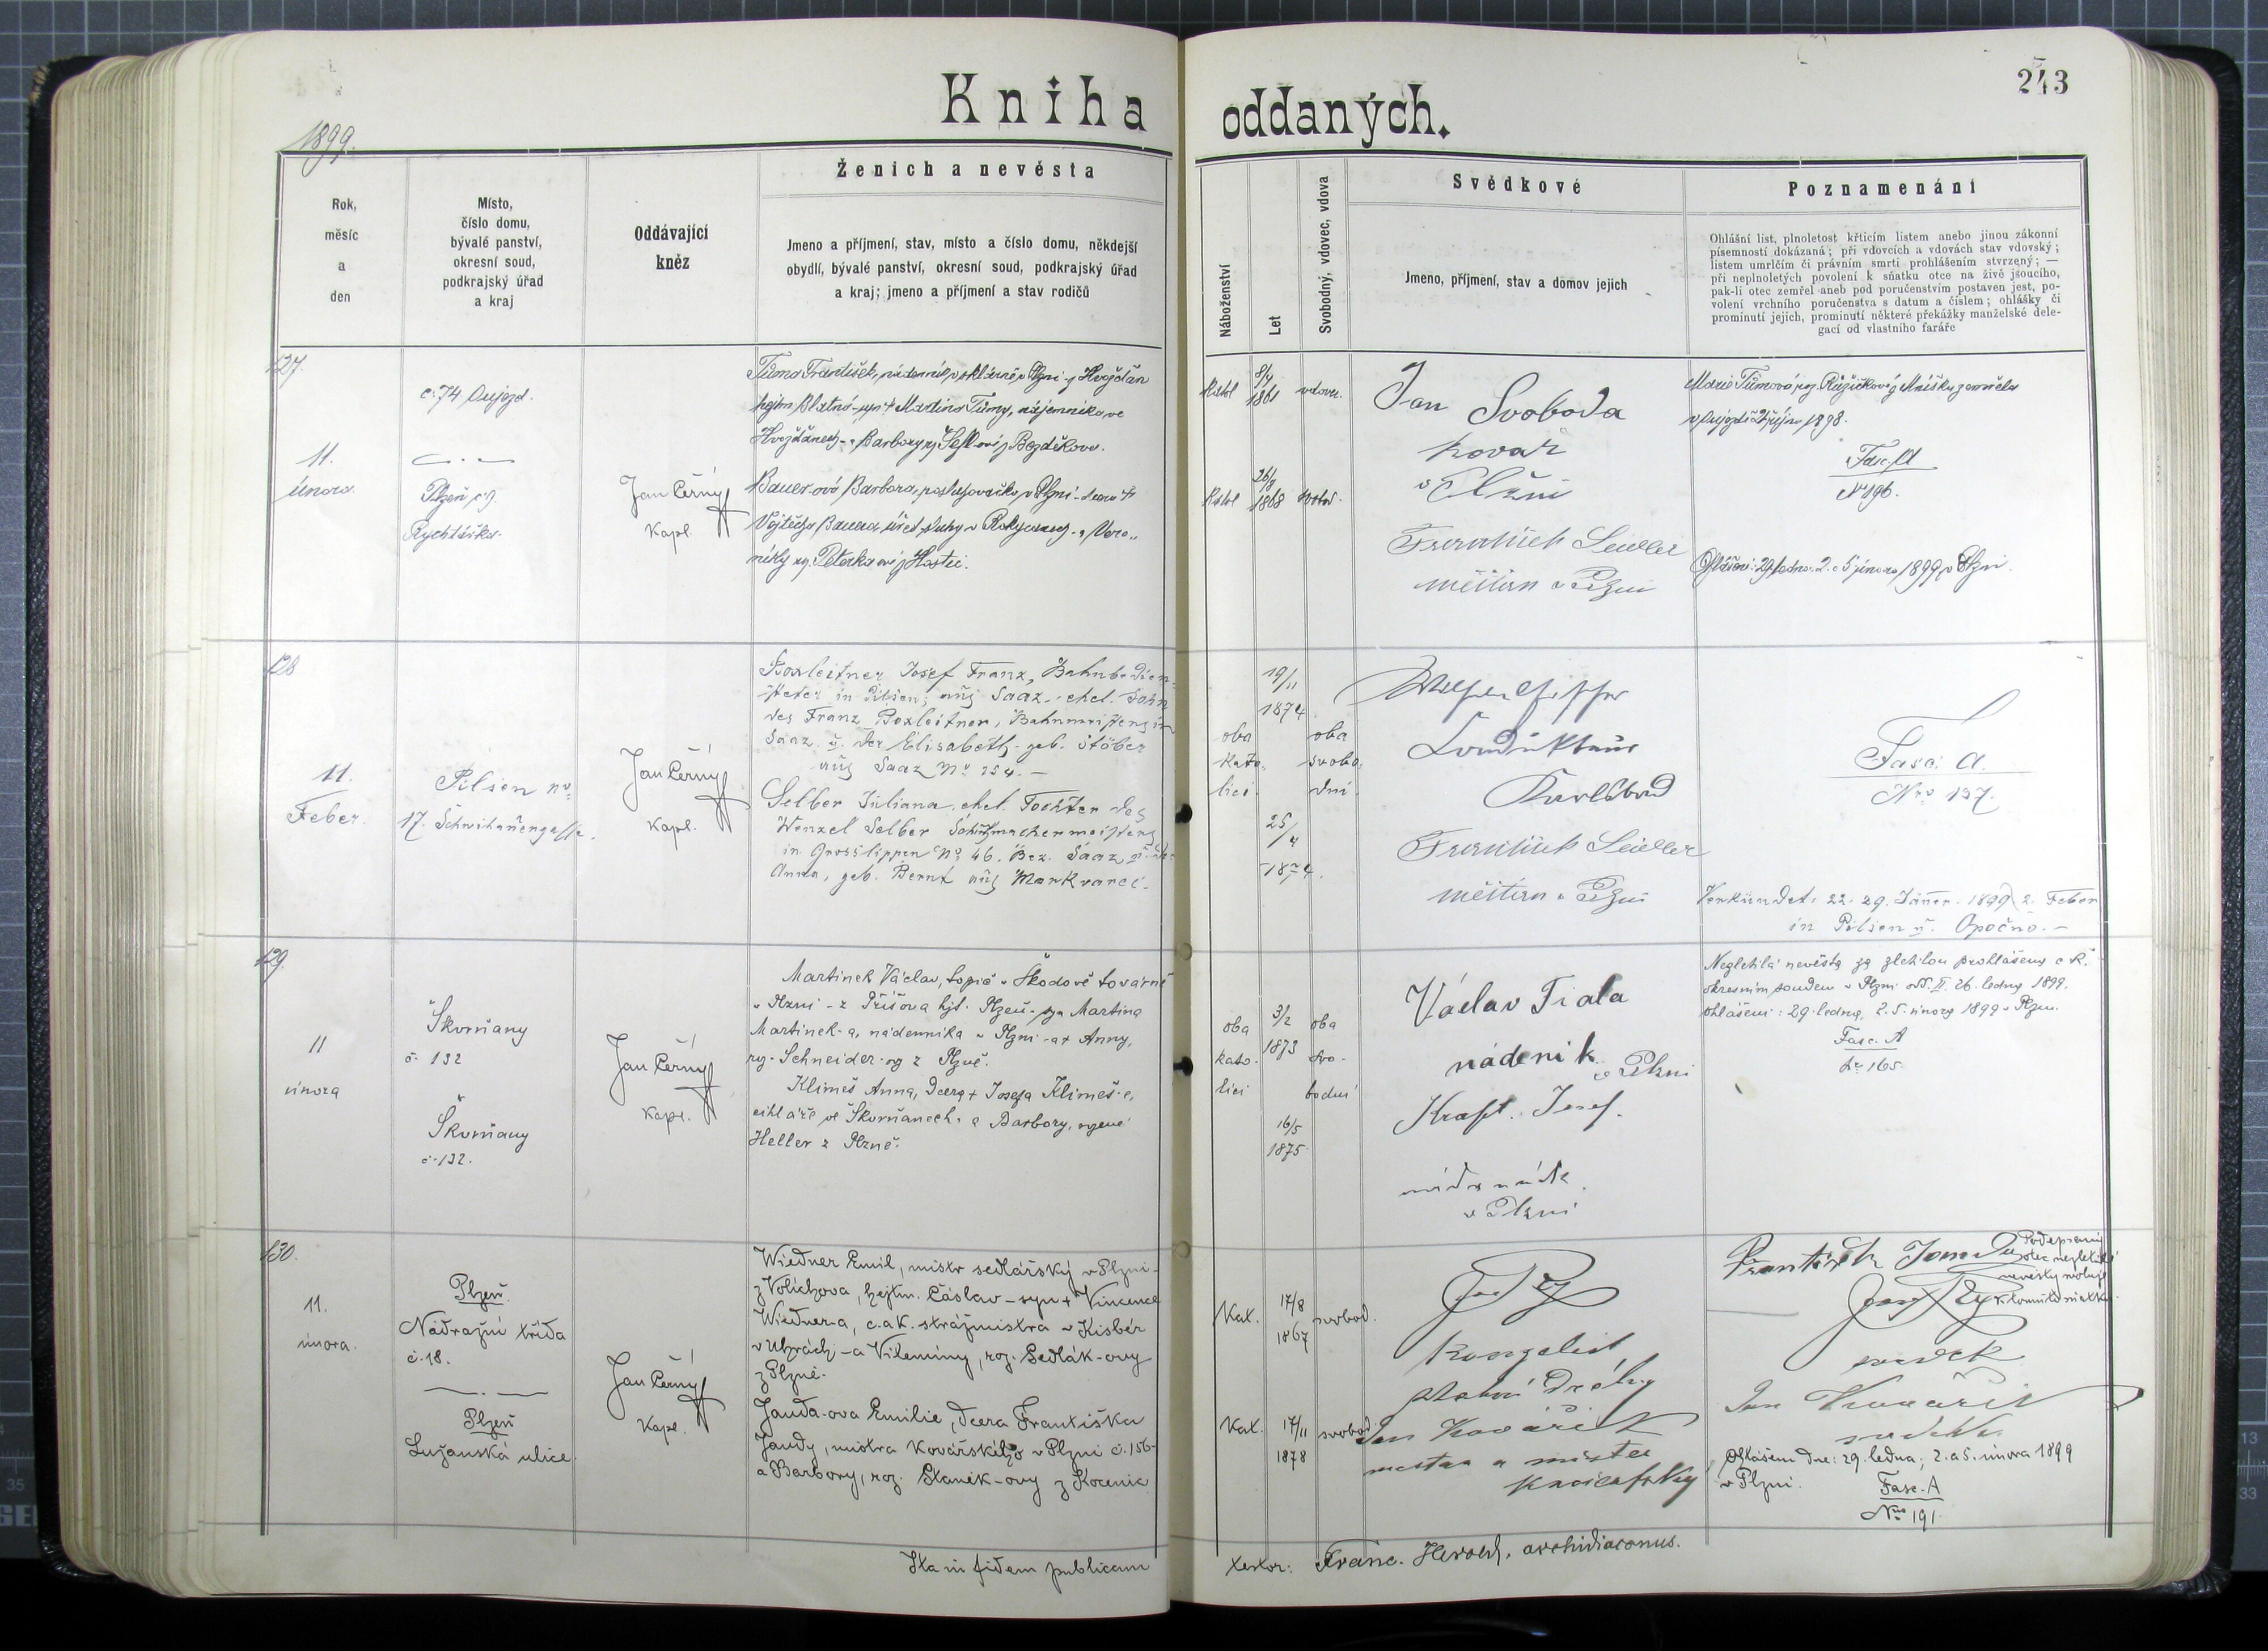 Kniha oddaných.
243
1899.
Rok, měsíc a den
Místo, číslo domu, bývalé panství, okresní soud, podkrajský úřad a kraj
Oddávající kněz
Ženich a nevěsta
Jmeno a příjmení, stav, místo a číslo domu, někdejší
obydlí, bývalé panství, okresní soud, podkrajský úřad
a kraj; jmeno a příjmení a stav rodičů
Náboženství
Let
Svobodný, vdovec, vdova
Svědkové
Jmeno, příjmení, stav a domov jejich
Poznamenání
Ohlášní list, plnoletost křticím listem anebo jinou zákonní
písemností dokázaná; při vdovcích a vdovách stav vdovský;
listem umrlčím či právním smrti prohlášením stvrzený; —
při neplnoletých povolení k sňatku otce na živě jsoucího,
pak-li otec zemřel aneb pod poručenstvím postaven jest, po-
volení vrchního poručenstva s datum a číslem; ohlášky čí
prominutí jejich, prominutí některé překážky manželské dele-
gací od vlastního faráře
127.
11.
února
č. 74 Oujezd.
Plzeň č. 9.
Rychtářka.
Jan Černý
Kapl.
Tůma František, nádenník v Plzni z Hvožďan
hejtm Blatná - syn † Martina Tůmy, nájemníka ve
Hvožďanech - a Barbory z Bezděkova.
Bauer-ová Barbora, posluhovačka v Plzni - dcera †
Vojtěcha Bauera v Rokycanech - a Vero-
niky roz.
8/4
1861
vdovec.
26/8
1868
svobod.
Jan Svoboda
kovář
v Plzni
František Seidler
měšťan v Plzni
Marie Tůmová roz. Růžičková z Mníšku zemřela
1898.
Fasc. A
Nro 196.
Ohlášeni: 29. ledna, 2. a 5. února 1899 v Plzni.
128
11.
Feber.
Pilsen no
17. Schwihauengasse.
Jan Černý
Kapl.
Boxleitner Josef Franz, Bahnbedien-
steter in Pilsen; aus Saaz - ehel. Sohn
des Franz Boxleitner, Bahnmeisters in
Saaz u. der Elisabeth - geb. Stöber
aus Saaz No 254. —
Selber Juliana, ehel. Tochter des
Wenzel Selber Schuhmachermeisters
in Grosslippen No 46. Bez. Saaz u. der
Anna, geb. Bernt aus Markvarec.
19/11
1874
oba
kato-
líci
oba
svobo
dní.
25/4
1874.
Karlsbad
František Seidler
měšťan v Plzni
Fasc. A.
Nro 197.
Verkündet: 22. 29. Jänner 1899 2. Feber
in Pilsen u. Opočno. —
129.
11
února
Škvrňany
č. 132
Škvrňany
č. 132.
Jan Černý
Kapl.
Martínek Václav, topič v Škodově továrně
v Plzni - z Příšova hjt. Plzeň - syn Martina
Martínek-a, nádenníka v Plzni - a † Anny,
roz. Schneider-ovy z Plzně.
Klimeš Anna, dcera † Josefa Klimeš-e,
cihláře ve Škvrňanech - a Barbory, rozené
Heller z Plzně.
oba
kato-
líci
3/2
1873
oba
svo-
bodní
16/5
1875
Václav Fiala
nádeník v Plzni
Kraft Josef.
v Plzni
Nezletilá nevěsta za zletilou prohlášena c. k.
okresním soudem v Plzni odd. II. 26. ledna 1899.
Ohlášeni: 29. ledna, 2. 5. února 1899 v Plzni.
Fasc. A
No 165.
130.
11.
února.
Plzeň
Nádražní třída
č. 18.
Plzeň
Lužanská ulice
Jan Černý
Kapl.
Wiedner Emil, mistr sedlářský v Plzni -
z Golčova, hejtm. Čáslav - syn † Vincence
Wiedner-a, c. a k. strážmistra v Kisbér
v Uhrách - a Vilemíny, roz. Sedlák-ovy
z Plzně.
Janda-ova Emilie, dcera Františka
Jandy, mistra kovářského v Plzni č. 156 -
a Barbory, roz. Staněk-ovy z Kocenic
Kat.
17/8
1867
svobod.
Kat.
17/11
1878
svobod
státní dráhy
Jan Kovářík
František Janda
Podepsaný
otec nezletilé
nevěsty svoluje
k tomuto sňatku.
svědek
Jan Kovářík
svědek.
Ohlášeni dne: 29. ledna, 2. a 5. února 1899
v Plzni.
Fasc. A
Nro 191.
Ita in fidem publicam
testor: Franc. Herold, archidiaconus.